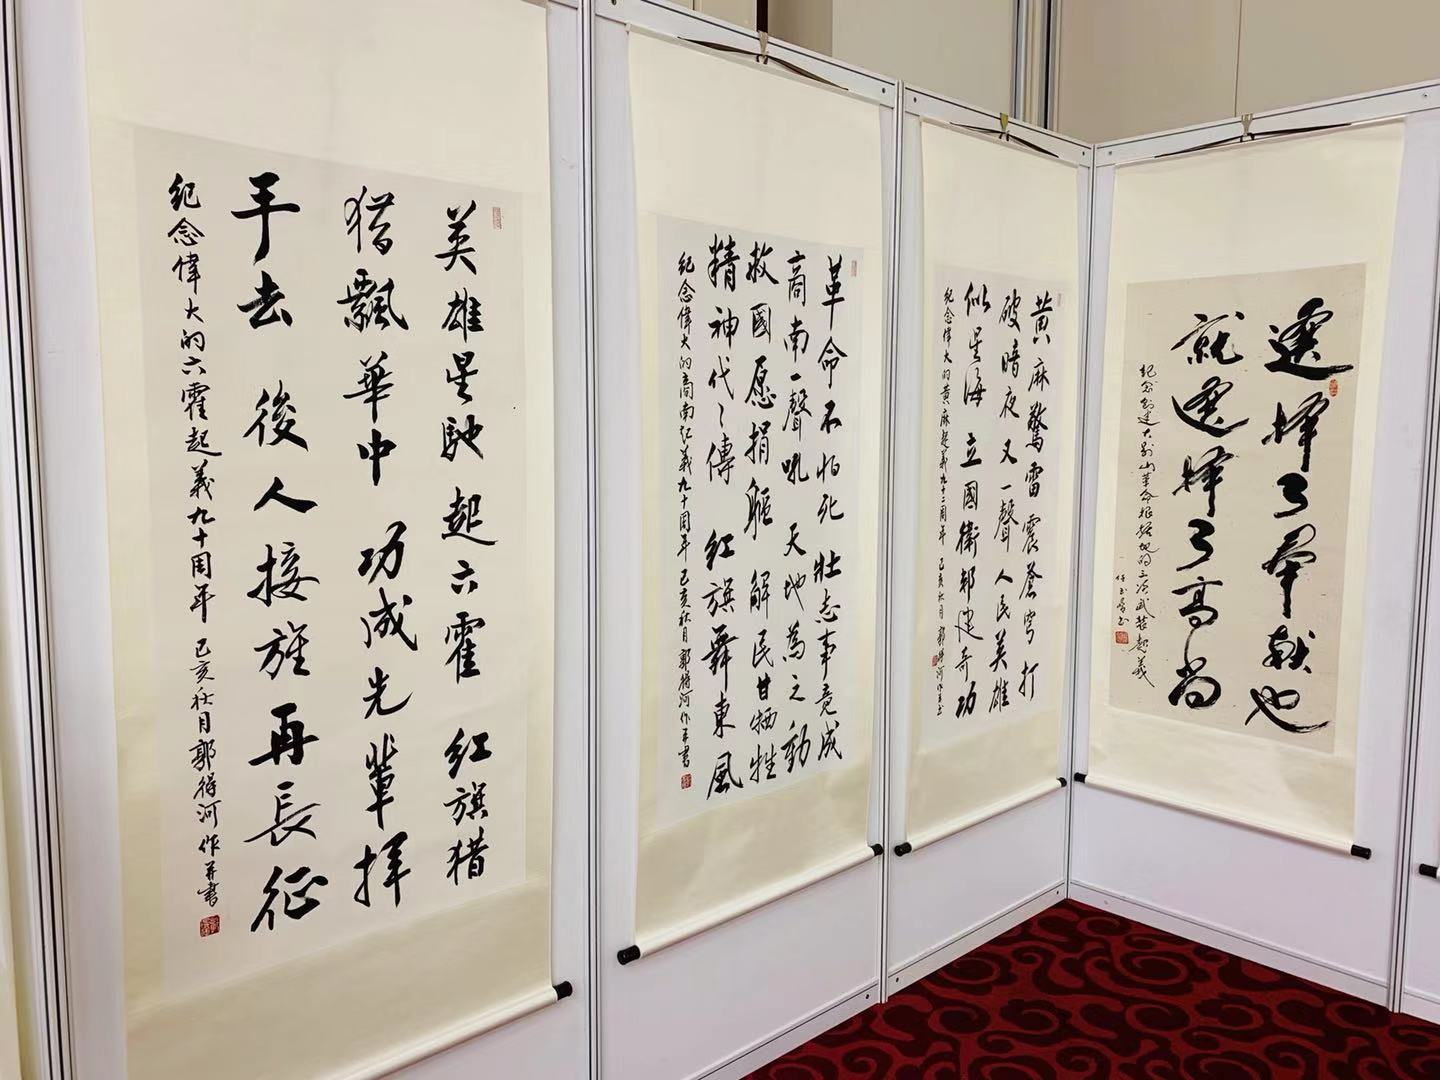 英雄星馳起六霍 红旗猎
猎飄華中 功成先輩挥
手去 後人接旌再長征
紀念偉大的六霍起義九十周年 己亥秋月 郭得河作并書
革命不怕死 壯志事竟成
商南一聲吼 天地為之動
救國愿捐軀 解民甘牺牲
精神代々傳 红旗舞東風
紀念偉大的商南起義九十周年 己亥秋月 郭得河作并書
黄麻驚雷震蒼穹 打
破暗夜又一聲 人民英雄
似星海 立國衛邦建奇功
紀念偉大的黄麻起義九十二周年 己亥秋月 郭得河作并書
選擇了奉献也
就選擇了高尚
紀念創建大别山革命根據地的三次武装起義